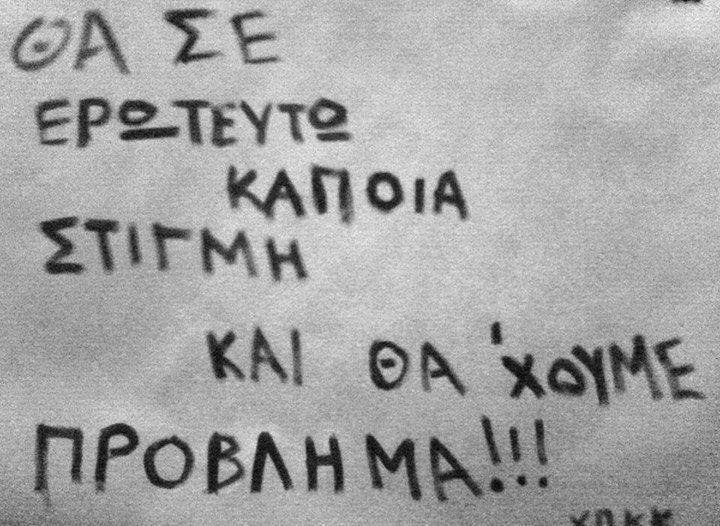 ΘΑ ΣΕ
ΕΡΩΤΕΥΤΩ
ΚΑΠΟΙΑ
ΣΤΙΓΜΗ
ΚΑΙ ΘΑ 'ΧΟΥΜΕ
ΠΡΟΒΛΗΜΑ!!!